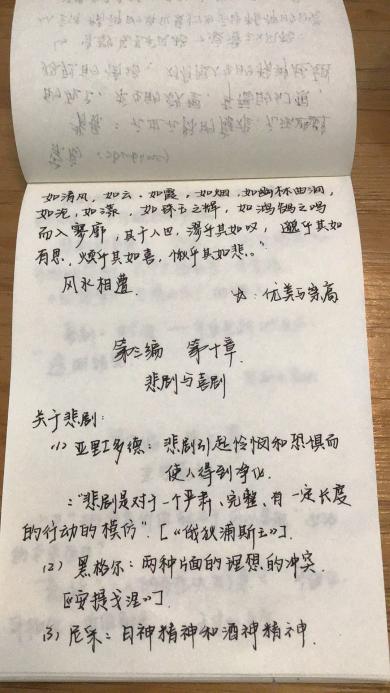 如清风，如云，如霞，如烟，如幽林曲涧，
如沦，如漾，如珠玉之辉，如鸿鹄之鸣
而入寥廓，其于人也，漻乎其如叹，邈乎其如
有思，暖乎其如喜，愀乎其如悲。”
风水相遭
优美与崇高
第三编 第十章
悲剧与喜剧
关于悲剧：
(1) 亚里士多德：悲剧引起怜悯和恐惧而
使人得到净化.
：“悲剧是对于一个严肃、完整、有一定长度
的行动的模仿”.［《俄狄浦斯王》］.
(2) 黑格尔：两种片面的理想的冲突.
［《安提戈涅》］.
(3) 尼采：日神精神和酒神精神.